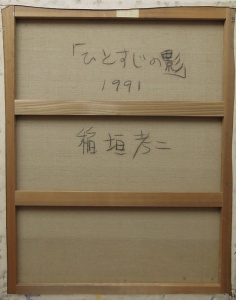 「ひとすじの影」
1991
稲垣考二